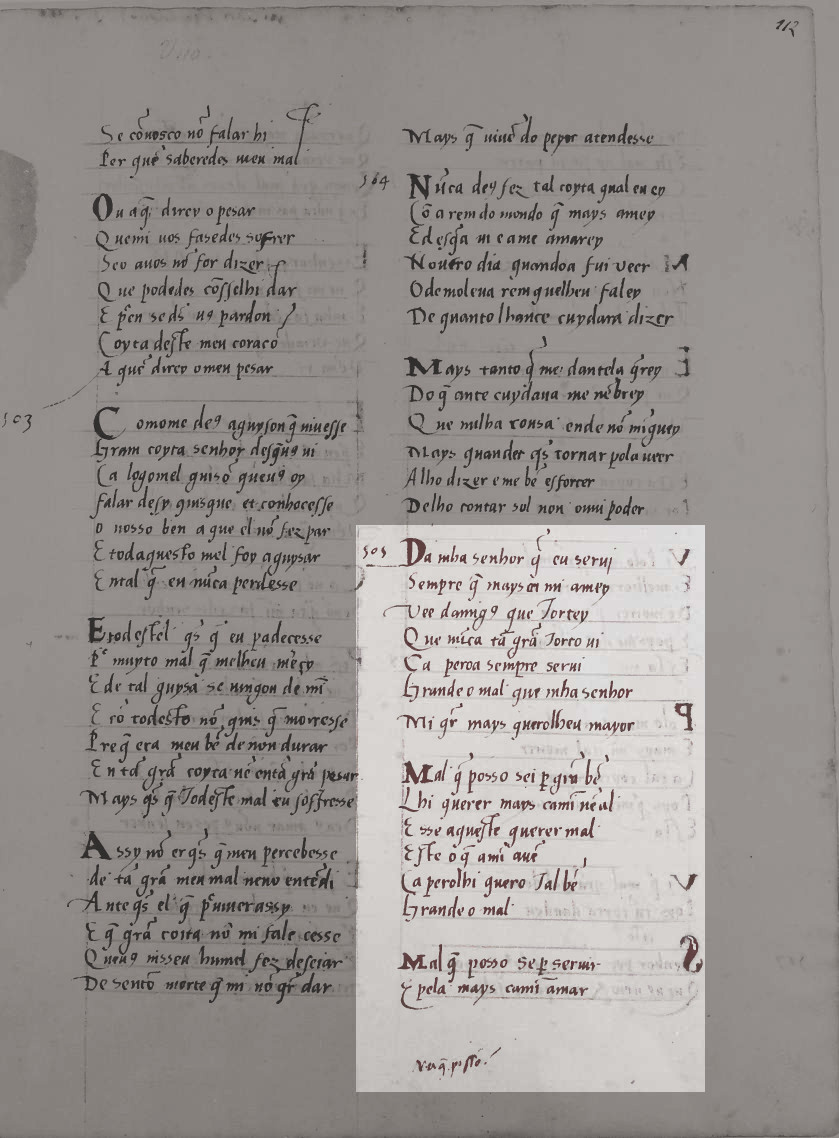 112
Se cõuosco nõ falar hi
Per quẽ saberedes meu mal
Ou a q̃ direy o pesar
Quemi uos fasedes sofrer
Seo auos nõ for dizer
Que podedes cõsselhi dar
E pẽn se ds̃ u9 pardon
Coyta deste meu coraçõ
A quẽ direy o meu pesar
503
Comome de9 aguyson q̃ niuesse
Gram coyta senhor desq̃u9 ui
Ca logomel guisõ queu9 oy
falar desy quisque et conhocesse
o nosso ben a que el nõ fez par
E todaquesto mel foy aguysar
Ental q̃ eu nũca perdesse
Etodestel qs̃ q̃ eu padecesse
Pr̃ muyto mal q̃ melheu mẽçy
E de tal guysa se uingou de mĩ
E cõ todesto nõ quis q̃ morresse
Pre q̃ era meu bẽ de non durar
En tã grã coyta nẽ entã grã pesar
Mays qs̃ q̃ Todeste mal eu soffresse
Assy nõ er qs̃ q̃ meu percebesse
de tã grã meu mal neno entẽdi
Ante qs̃ el q̃ pr̃ uiuerassy
E q̃ grã coita nõ mi falecesse
Queu9 uisseu humel fez deseiar
De sentõ morte q̃ mi nõ qr̃ dar
Mays q̃ uiuẽdo peyor atendesse
504
Nũca de9 fez tal coyta qual eu ey
Cõ a rem do mondo q̃ mays amey
E desq̃a ui e ame amarey
Noutro dia quandoa fui ueer
O demo leua rem quelheu faley
De quanto lhante cuydara dizer
Mays tanto q̃ me dantela q̃rey
Do q̃ ante cuydaua me nẽbrey
Que nulha cousa ende nõ minguey
Mays quander qs̃ tornar pola ueer
A lho dizer e me bẽ esforcer
Delho contar sol non ouui poder
505
Da mha senhor q̃ eu serui
Sempre q̃ mays ca mi amey
Vee damig9 que Tortey
Que nũca tã grã Torto ui
Ca peroa sempre serui
Grande o mal que mha senhor
Mi qr̃ mays querolheu mayor
Mal q̃ posso sei p̱ grã bẽ
Lhi querer mays camĩ nẽ al
E sse aqueste querer mal
Este o q̃ ami auẽ
Ca perolhi quero Tal bẽ
Grande o mal
Mal q̃ posso se p̱ seruir
E pela mays camĩ amar